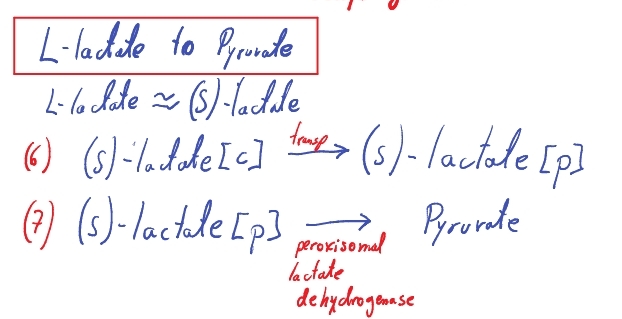 L-lactate to Pyruvate
L-lactate ≈ (S)-lactate
(6) (s)-lactate [c] transp → (s)-lactate [p]
(7) (s)-lactate [p] → Pyruvate
peroxisomal
lactate
dehydrogenase